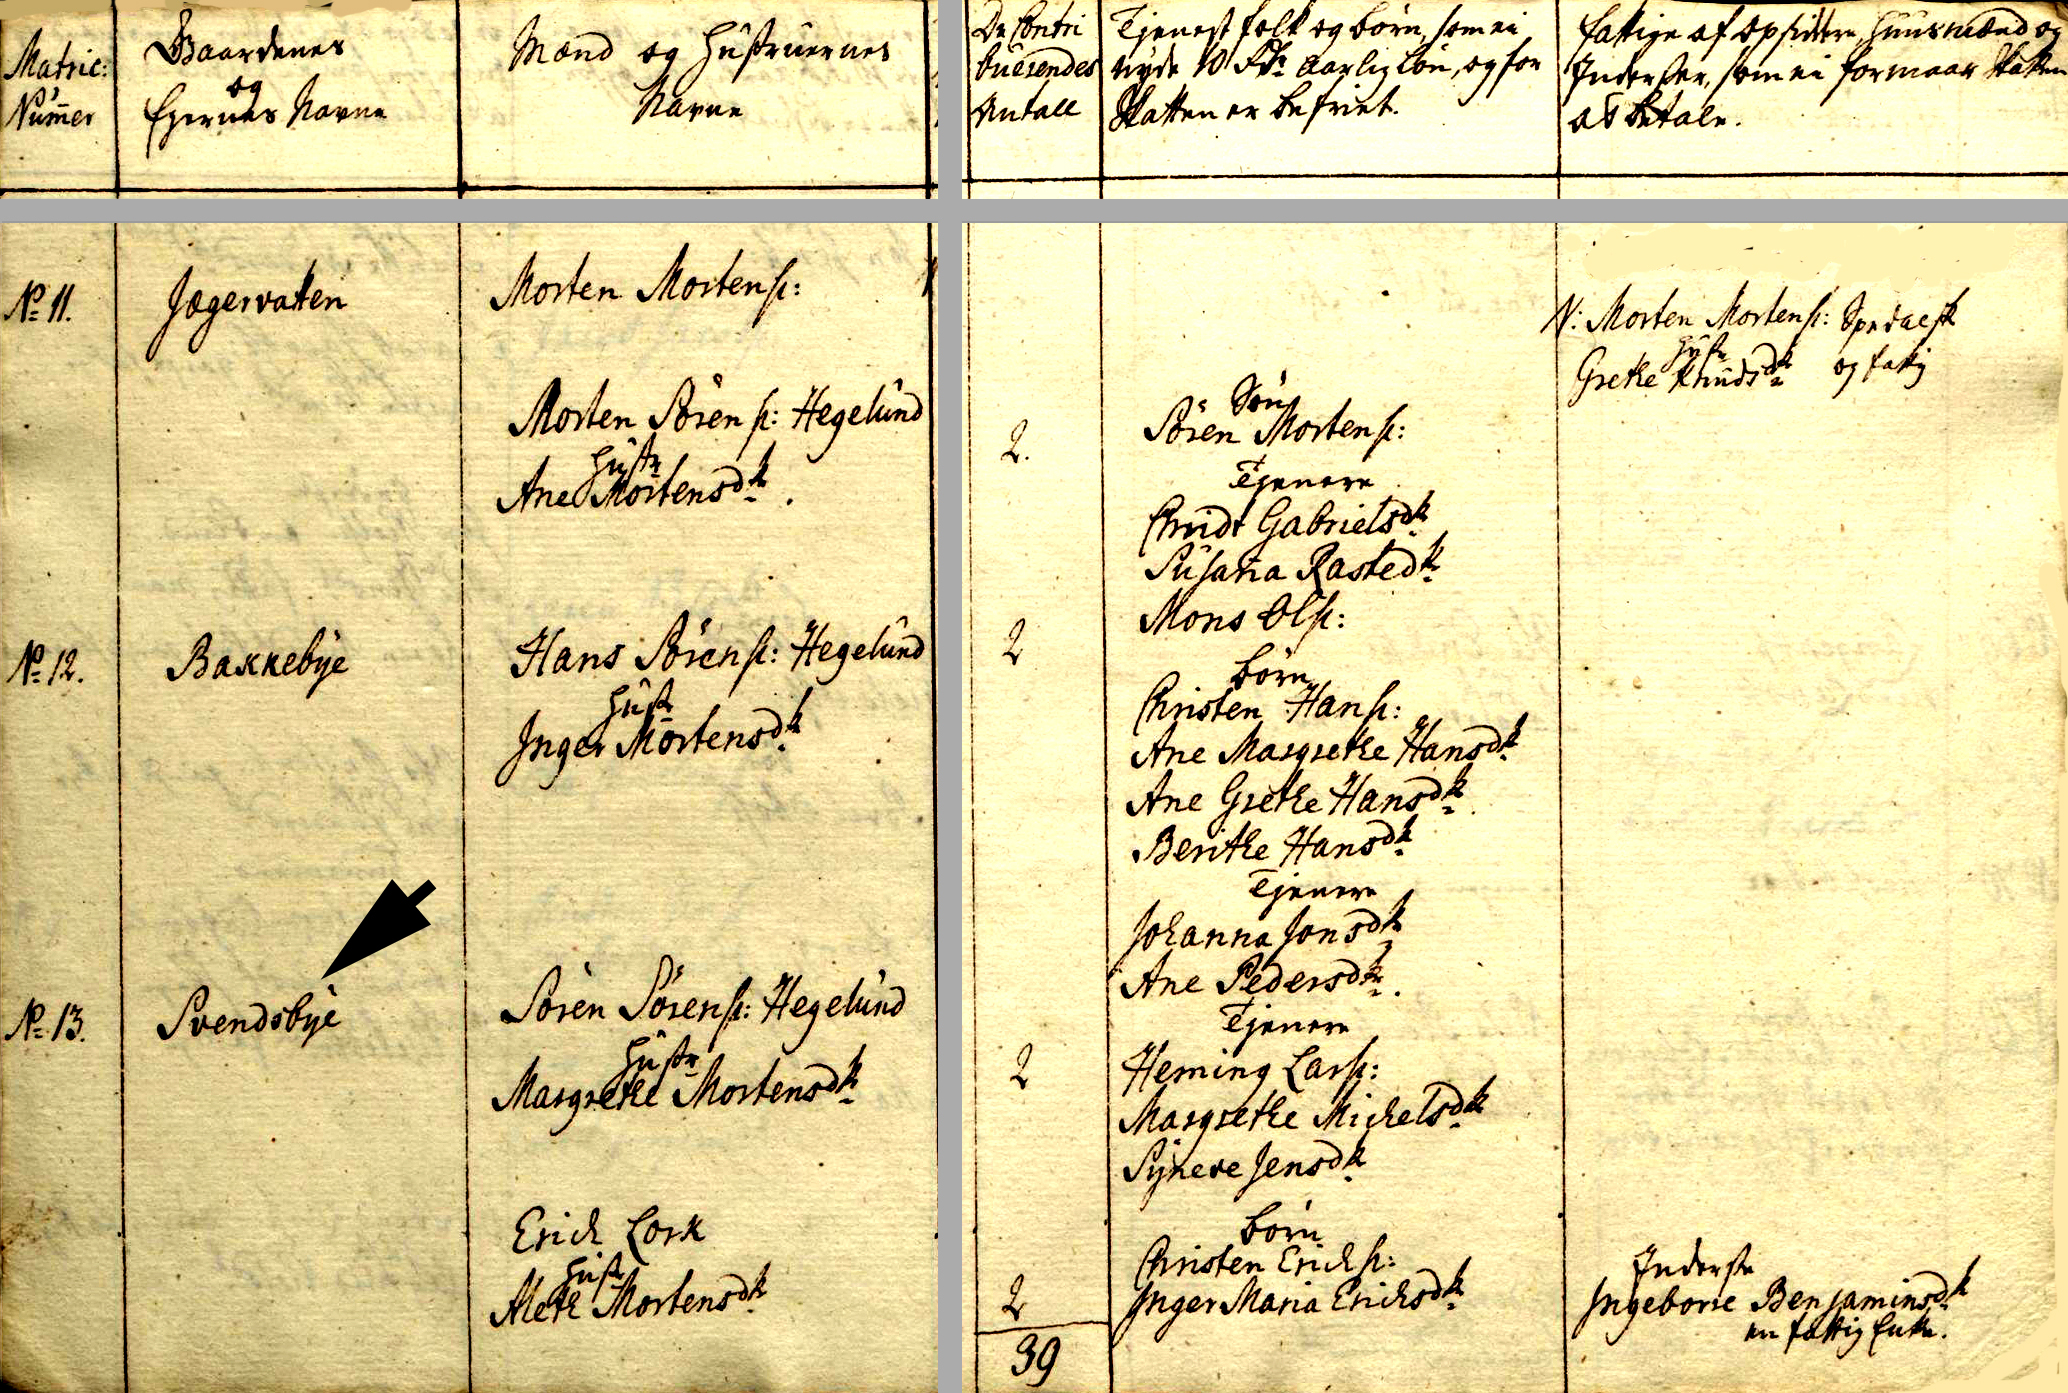 Matric:
Nummer
Gaardenes
og
Ejernes Navne
Mænd og Hustruernes
Navne
De Contri
buerendes
Antall
Tjenest folk og børn, som ei
nyde 10 Rdr Aarlig Løn, og for
Skatten er befriet.
fattige af opsiddere, Huusmænd og
Inderster, som ei formaar Skatten
at betale.
No 11.
Jægervatten
Morten Mortens:
N: Morten Mortens: Spedalsk
Hustr
Grethe Knudsdtr og fattig
Morten Sørens: Hegelund
Hustr
Ane Mortensdtr.
2.
Søn
Søren Mortens:
Tjenere
Gabrielsdtr
Susana Rastedtr
Mons Ols:
No 12.
Bakkebye
Hans Sørens: Hegelund
Hustr
Inger Mortensdtr
2
børn
Christen Hans:
Ane Margrethe Hansdtr
Ane Grethe Hansdtr
Berithe Hansdtr
Tjenere
Johanna Jonsdtr
Ane Pedersdtr.
No 13.
Svendsbye
Søren Sørens: Hegelund
Hustr
Margrethe Mortensdtr
2
Tjenere
Heming Lars:
Margrethe Michelsdtr
Syneve Jensdtr
Erich Lork
Hustr
Aleth Mortensdtr
2
børn
Christen Erichs:
Inger Maria Erichsdtr
Inderste
Ingeborre Benjaminsdtr
en fattig Enke.
39